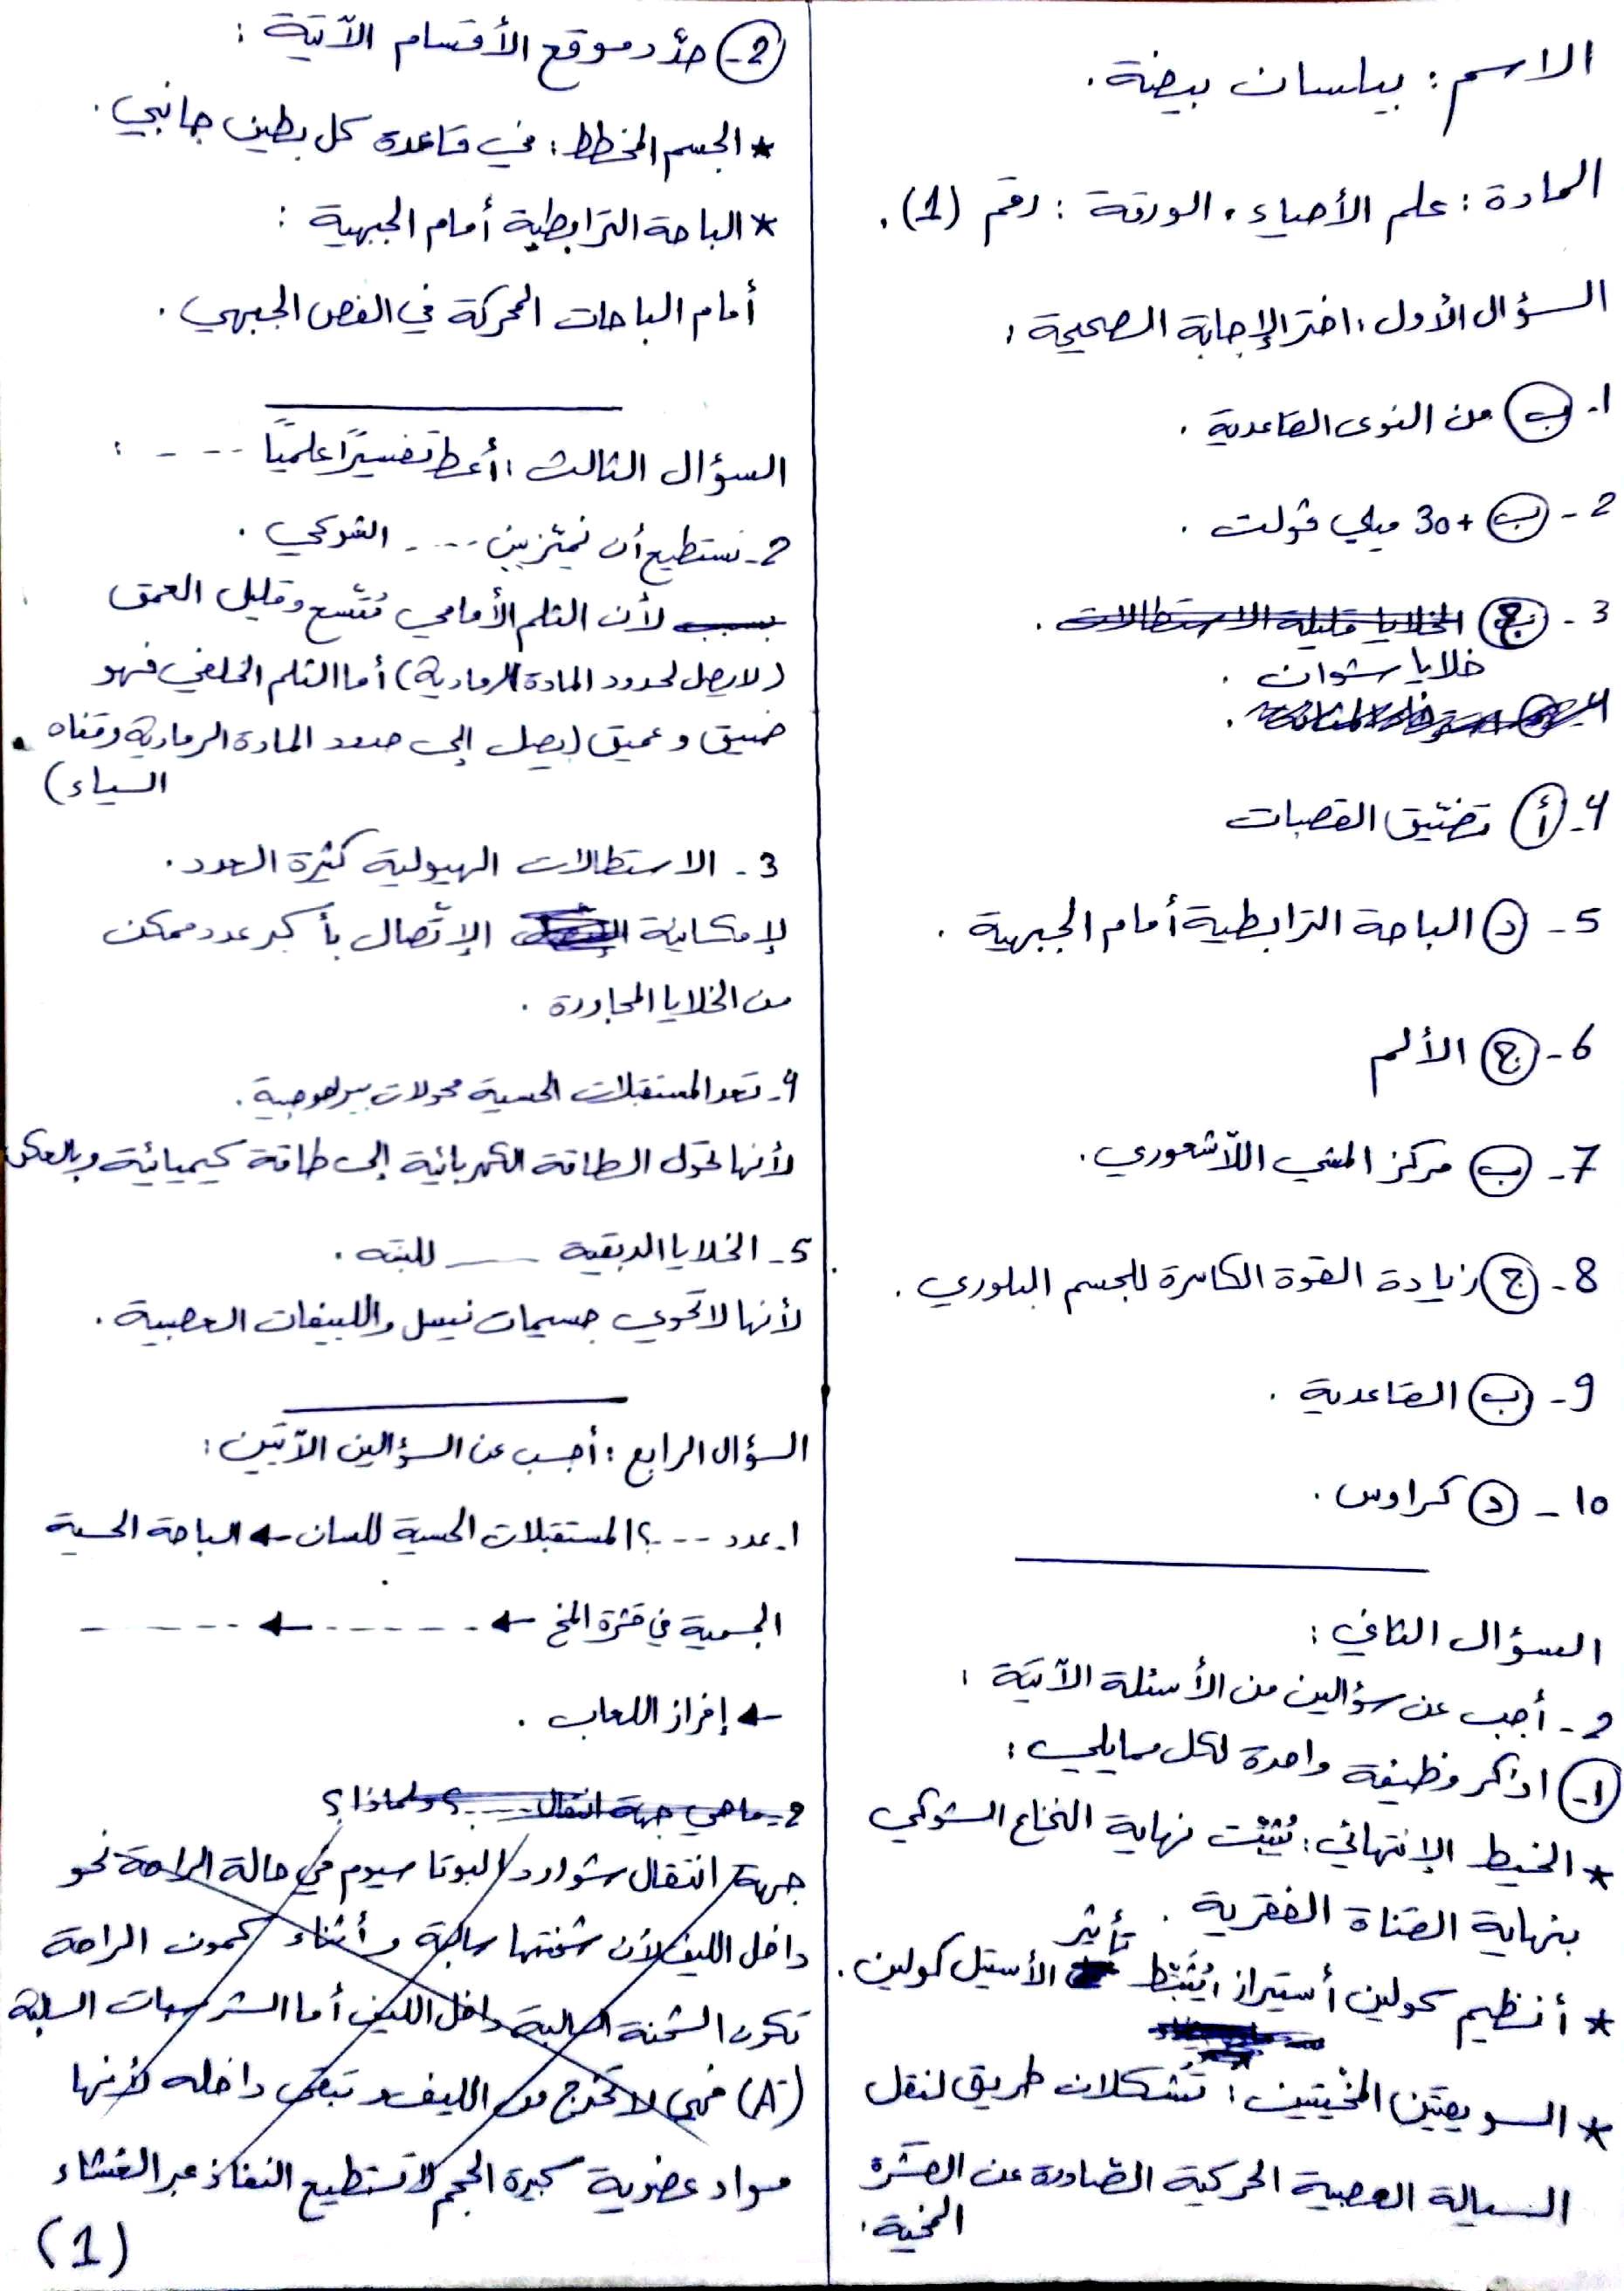 الاسم : بيلسان بيضة .
المادة : علم الأحياء . الورقة : رقم (1) .
السؤال الأول : اختر الإجابة الصحيحة :
1- ب من النوى القاعدية .
2- ب +30 ميلي ڤولت .
3- ج الخلايا قليلة الاستطالات .
خلايا شوان .
4- أ تضيّق القصبات
5- د الباحة الترابطية أمام الجبهية .
6- ج الألم
7- ب مركز المشي اللّاشعوري .
8- ج زيادة القوة الكاسرة للجسم البلوري .
9- ب القاعدية .
10- د كراوس .
السؤال الثاني :
2- أجب عن سؤالين من الأسئلة الآتية :
1- اذكر وظيفة واحدة لكل مما يلي :
* الخيط الإنتهائي : تُثبّت نهاية النخاع الشوكي
بنهاية القناة الفقرية .
* أنظيم كولين أستيراز : يُثبّط تأثير الأستيل كولين .
* السويقتين المخيتين : تُشكلان طريق لنقل
السيالة العصبية الحركية الصّادرة عن القشرة
المخية .
2- حدّد موقع الأقسام الآتية :
* الجسم المخطط : في قاعدة كل بطين جانبي .
* الباحة الترابطية أمام الجبهية :
أمام الباحات المحركة في الفص الجبهي .
السؤال الثالث : أعطِ تفسيرًا علميًا ---- :
2- نستطيع أن نميّز بين ---- الشوكي .
بسبب لأن الثلم الأمامي مُتّسع وقليل العمق
(لا يصل لحدود المادة الرمادية) أما الثلم الخلفي فهو
ضيق وعميق (يصل إلى حدود المادة الرمادية وقناه
السياء)
3- الاستطالات الهيولية كثيرة العدد .
لإمكانية الإتّصال بأكبر عدد ممكن
من الخلايا المجاورة .
4- تعد المستقبلات الحسية محولات بيولوجية .
لأنها تحوّل الطاقة الكهربائية إلى طاقة كيميائية وبالعكس
5- الخلايا الدبقية ___ للبته .
لأنها لا تحوي جسيمات نيسل والليفات العصبية .
السؤال الرابع : أجب عن السؤالين الآتيين :
1- عدد ---؟ المستقبلات الحسية للسان ← الباحة الحسية
الجسمية في قشرة المخ ← ------ ← ------
← إفراز اللعاب .
2- ما هي جهة انتقال ----؟ ولماذا؟
جهة انتقال شوارد البوتاسيوم في حالة الراحة نحو
داخل الليف لأن شحنتها سالبة وأثناء كمون الراحة
تكون الشحنة السالبة داخل الليف أما الشرسبات السالبة
(A-) فهي لا تخرج من الليف وتبقى داخله لأنها
مواد عضوية كبيرة الحجم لا تستطيع النفاذ عبر الغشاء
(1)